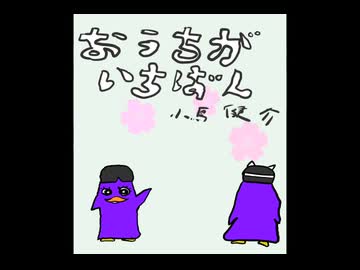 おうちが
いちばん
小鳥 健介